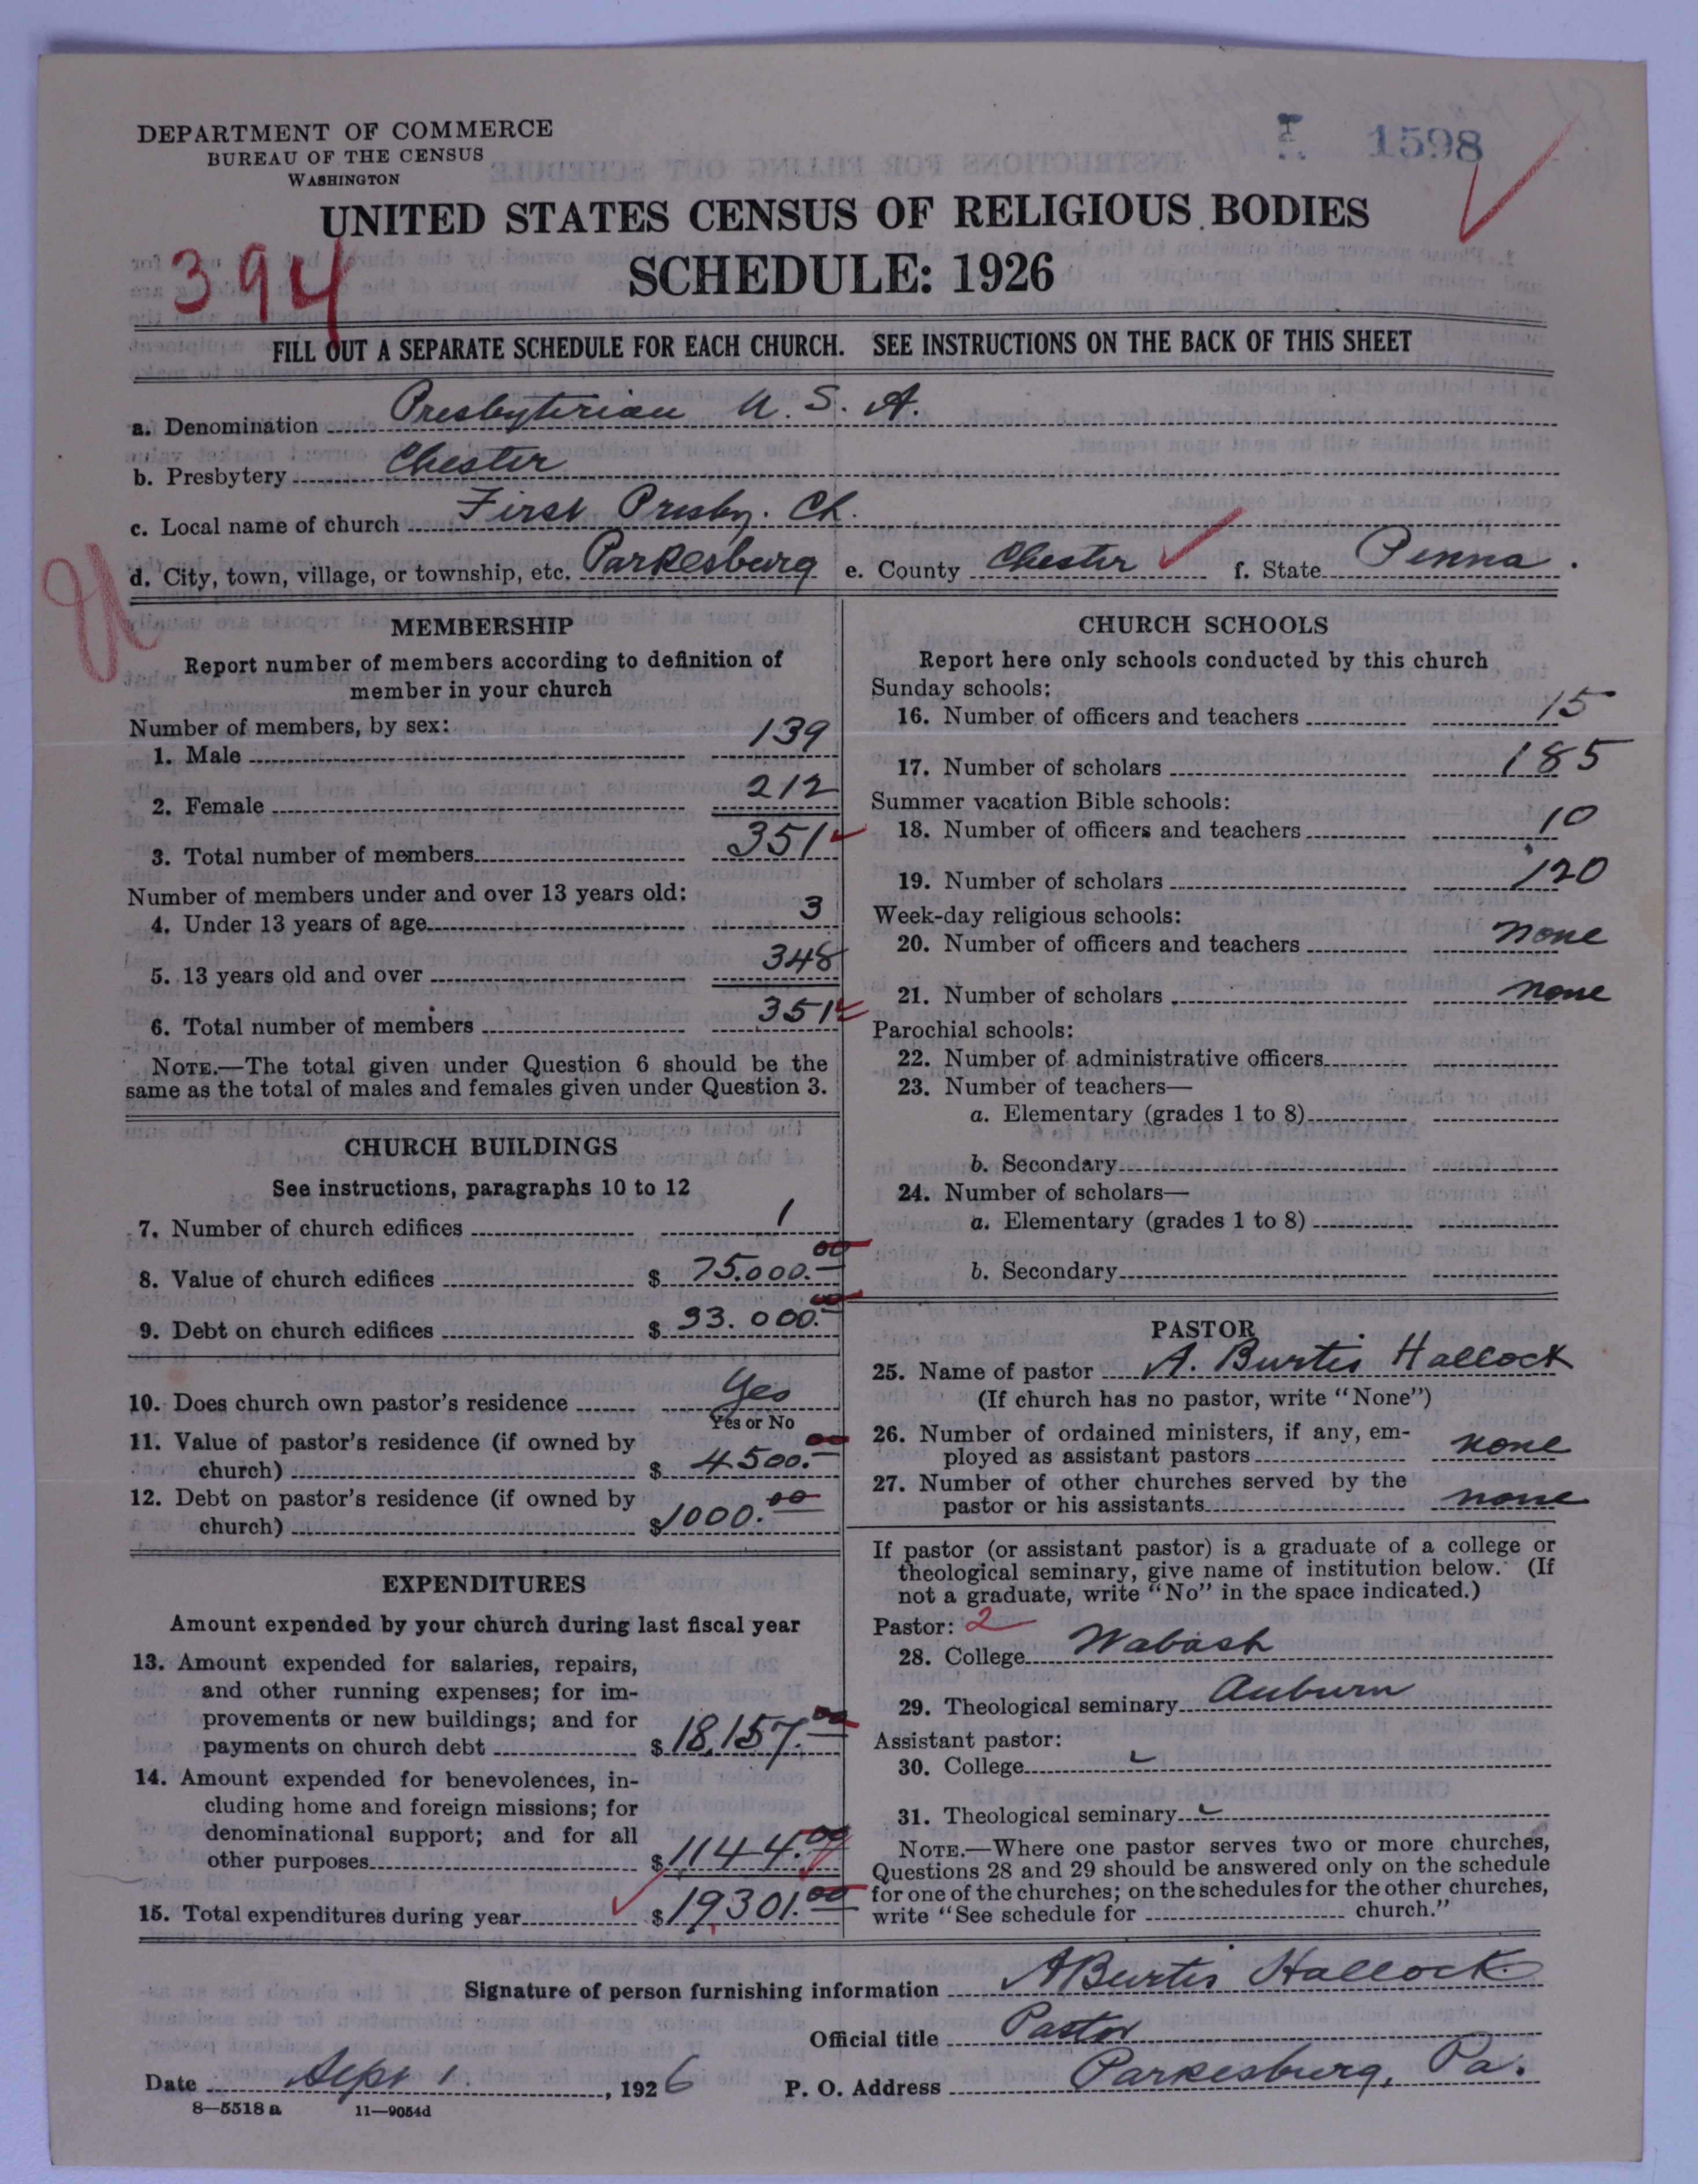 DEPARTMENT OF COMMERCE
BUREAU OF THE CENSUS
WASHINGTON
1598
UNITED STATES CENSUS OF RELIGIOUS BODIES
394
SCHEDULE: 1926
FILL OUT A SEPARATE SCHEDULE FOR EACH CHURCH. SEE INSTRUCTIONS ON THE BACK OF THIS SHEET
a. Denomination Presbyterian U. S. A.
b. Presbytery Chester
c. Local name of church First Presby. Ch.
d. City, town, village, or township, etc. Parkesburg e. County Chester f. State Penna.
MEMBERSHIP
Report number of members according to definition of
member in your church
Number of members, by sex:
1. Male 139
2. Female 212
3. Total number of members 351
Number of members under and over 13 years old:
4. Under 13 years of age 3
5. 13 years old and over 348
6. Total number of members 351
NOTE.—The total given under Question 6 should be the
same as the total of males and females given under Question 3.
CHURCH BUILDINGS
See instructions, paragraphs 10 to 12
7. Number of church edifices 1
8. Value of church edifices $ 75.000.00
9. Debt on church edifices $ 33.000.00
10. Does church own pastor's residence Yes
Yes or No
11. Value of pastor's residence (if owned by
church) $ 4500.00
12. Debt on pastor's residence (if owned by
church) $ 1000.00
EXPENDITURES
Amount expended by your church during last fiscal year
13. Amount expended for salaries, repairs,
and other running expenses; for im-
provements or new buildings; and for
payments on church debt $ 18,157.00
14. Amount expended for benevolences, in-
cluding home and foreign missions; for
denominational support; and for all
other purposes $ 1144.00
15. Total expenditures during year $ 19301.00
CHURCH SCHOOLS
Report here only schools conducted by this church
Sunday schools:
16. Number of officers and teachers 15
17. Number of scholars 185
Summer vacation Bible schools:
18. Number of officers and teachers 10
19. Number of scholars 120
Week-day religious schools:
20. Number of officers and teachers none
21. Number of scholars none
Parochial schools:
22. Number of administrative officers
23. Number of teachers—
a. Elementary (grades 1 to 8)
b. Secondary
24. Number of scholars—
a. Elementary (grades 1 to 8)
b. Secondary
PASTOR
25. Name of pastor A. Burtis Hallock
(If church has no pastor, write "None")
26. Number of ordained ministers, if any, em-
ployed as assistant pastors none
27. Number of other churches served by the
pastor or his assistants none
If pastor (or assistant pastor) is a graduate of a college or
theological seminary, give name of institution below. (If
not a graduate, write "No" in the space indicated.)
Pastor: 2
28. College Wabash
29. Theological seminary Auburn
Assistant pastor:
30. College
31. Theological seminary
NOTE.—Where one pastor serves two or more churches,
Questions 28 and 29 should be answered only on the schedule
for one of the churches; on the schedules for the other churches,
write "See schedule for church."
Signature of person furnishing information A Burtis Hallock
Official title Pastor
Date Sept 1., 1926 P. O. Address Parkesburg, Pa.
8—5518 a 11—9054d